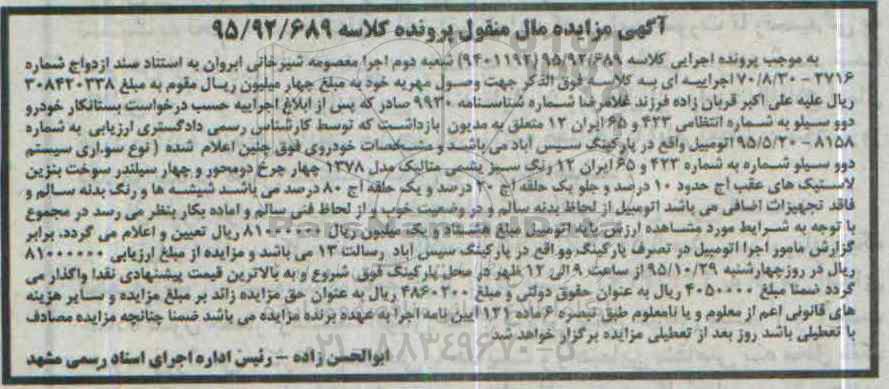 آگهی مزایده مال منقول پرونده کلاسه ۹۵/۹۲/۶۸۹
به موجب پرونده اجرایی کلاسه ۹۵/۹۲/۶۸۹ (۹۴۰۱۱۹۲) شعبه دوم اجرا معصومه شیرخانی ابروان به استناد سند ازدواج شماره
۲۷۱۶ - ۷۰/۸/۳۰ اجراییه ای به کلاسه فوق الذکر جهت وصول مهریه خود به مبلغ چهار میلیون ریال مقوم به مبلغ ۳۰۸۴۲۰۳۳۸
ریال علیه علی اکبر قربان زاده فرزند غلامرضا شماره شناسنامه ۹۹۳۰ صادر که پس از ابلاغ اجراییه حسب درخواست بستانکار خودرو
دوو سیلو به شماره انتظامی ۴۲۳ و ۶۵ ایران ۱۲ متعلق به مدیون بازداشت که توسط کارشناس رسمی دادگستری ارزیابی به شماره
۸۱۵۸ - ۹۵/۵/۲۰ اتومبیل واقع در پارکینگ سیس آباد می باشد و مشخصات خودروی فوق چنین اعلام شده ( نوع سواری سیستم
دوو سیلو شماره به شماره ۴۲۳ و ۶۵ ایران ۱۲ رنگ سبز یشمی متالیک مدل ۱۳۷۸ چهار چرخ دومحور و چهار سیلندر سوخت بنزین
لاستیک های عقب آج حدود ۱۰ درصد و جلو یک حلقه آج ۲۰ درصد و یک حلقه آج ۸۰ درصد می باشد شیشه ها و رنگ بدنه سالم و
فاقد تجهیزات اضافی می باشد اتومبیل از لحاظ بدنه سالم و در وضعیت خوب و از لحاظ فنی سالم و اماده بکار بنظر می رسد در مجموع
با توجه به شرایط مورد مشاهده ارزش پایه اتومبیل مبلغ هشتاد و یک میلیون ریال ۸۱۰۰۰۰۰۰ ریال تعیین و اعلام می گردد. برابر
گزارش مامور اجرا اتومبیل در تصرف پارکینگ وواقع در پارکینگ سیس آباد رسالت ۱۳ می باشد و مزایده از مبلغ ارزیابی ۸۱۰۰۰۰۰۰
ریال در روزچهارشنبه ۹۵/۱۰/۲۹ از ساعت ۹ الی ۱۲ ظهر در محل پارکینگ فوق شروع و به بالاترین قیمت پیشنهادی نقدا واگذار می
گردد ضمنا مبلغ ۴۰۵۰۰۰۰ ریال به عنوان حقوق دولتی و مبلغ ۴۸۶۰۲۰۰ ریال به عنوان حق مزایده زائد بر مبلغ مزایده و سایر هزینه
های قانونی اعم از معلوم و یا نامعلوم طبق تبصره ۶ ماده ۱۲۱ آیین نامه اجرا به عهده برنده مزایده می باشد ضمنا چنانچه مزایده مصادف
با تعطیلی باشد روز بعد از تعطیلی مزایده برگزار خواهد شد
ابوالحسن زاده - رئیس اداره اجرای اسناد رسمی مشهد
۰۲۱-۸۸۳۴۹۶۷۰-۵